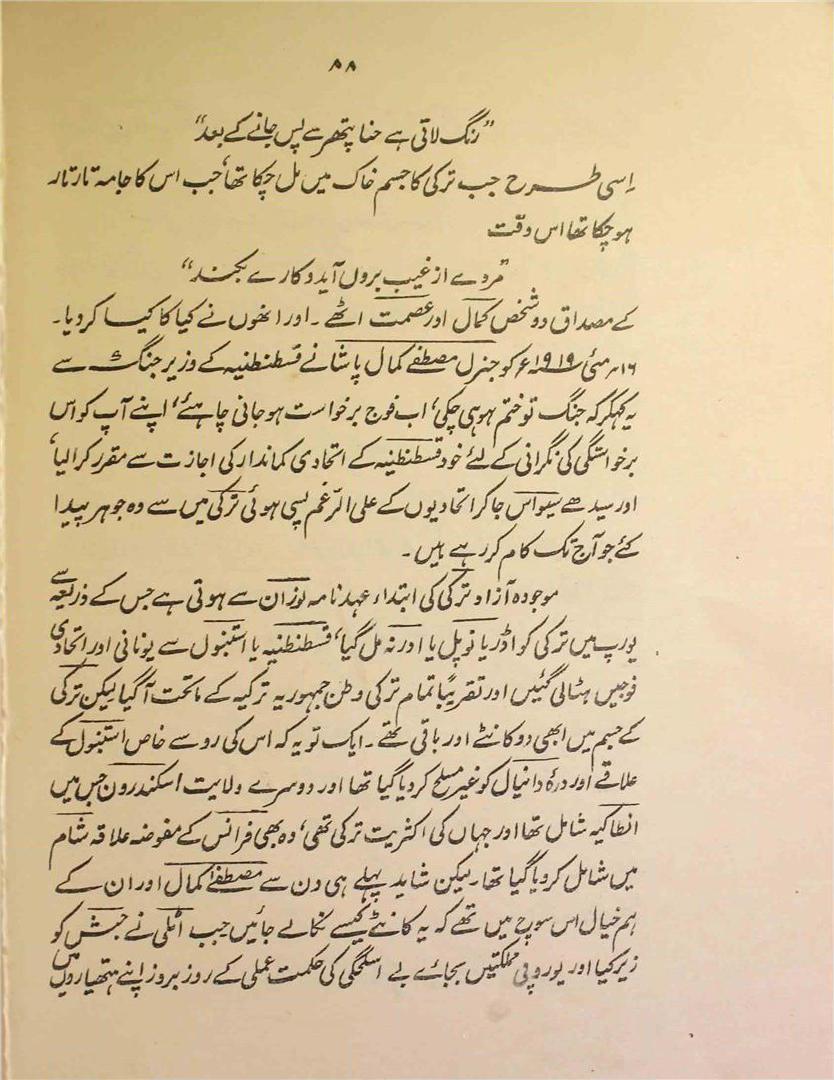 ۸۸
”رنگ لاتی ہے حنا پتھر سے پس جانے کے بعد“
اِسی طرح جب ترکی کا جسم خاک میں مل چکا تھا، جب اس کا جامہ تار تار
ہو چکا تھا اس وقت
”مردے از غیب بروں آید و کارے بکند“
کے مصداق دو شخص کمال اور عصمت اٹھے ۔ اور انھوں نے کیا کا کیا کر دیا ۔
۱۶ر مئی ۱۹۱۹ء کو جنرل مصطفےٰ کمال پاشا نے قسطنطنیہ کے وزیر جنگ سے
یہ کہکر کہ جنگ تو ختم ہو ہی چکی، اب فوج برخواست ہو جانی چاہئے، اپنے آپ کو اس
برخواستگی کی نگرانی کے لئے خود قسطنطنیہ کے اتحادی کماندار کی اجازت سے مقرر کرالیا،
اور سیدھے سیواس جا کر اتحادیوں کے علی الرّغم پسی ہوئی ترکی میں سے وہ جوہر پیدا
کئے جو آج تک کام کر رہے ہیں ۔
موجودہ آزاد ترکی کی ابتداء عہد نامہ لوزان سے ہوتی ہے جس کے ذریعہ سے
یورپ میں ترکی کو اڈریانوپل یا ادرنہ مل گیا، قسطنطنیہ یا استنبول سے یونانی اور اتحادی
فوجیں ہٹالی گئیں اور تقریبًا تمام ترکی وطن جمہوریہ ترکیہ کے ماتحت آگیا لیکن ترکی
کے جسم میں ابھی دو کانٹے اور باقی تھے ۔ ایک تو یہ کہ اس کی رو سے خاص استنبول کے
علاقے اور درۂ دانیال کو غیر مسلح کر دیا گیا تھا اور دوسرے ولایت اسکندرون جس میں
انطاکیہ شامل تھا اور جہاں کی اکثریت ترکی تھی، وہ بھی فرانس کے مفوضہ علاقہ شام
میں شامل کر دیا گیا تھا۔ لیکن شاید پہلے ہی دن سے مصطفےٰ کمال اور ان کے
ہم خیال اس سوچ میں تھے کہ یہ کانٹے کیسے نکالے جائیں جب اٹلی نے حبش کو
زیر کیا اور یوروپی مملکتیں بجائے بے اسلحگی کی حکمت عملی کے روز بروز اپنے ہتھیاروں میں